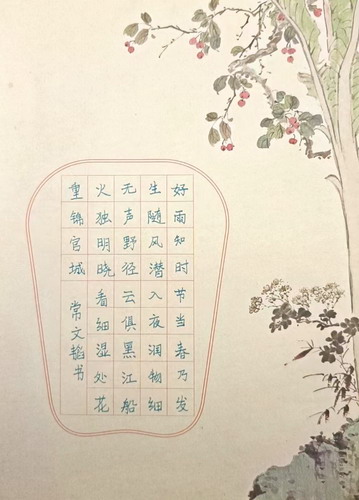 好雨知时节当春乃发
生随风潜入夜润物细
无声野径云俱黑江船
火独明晓看细湿处花
重锦官城 常文韬书